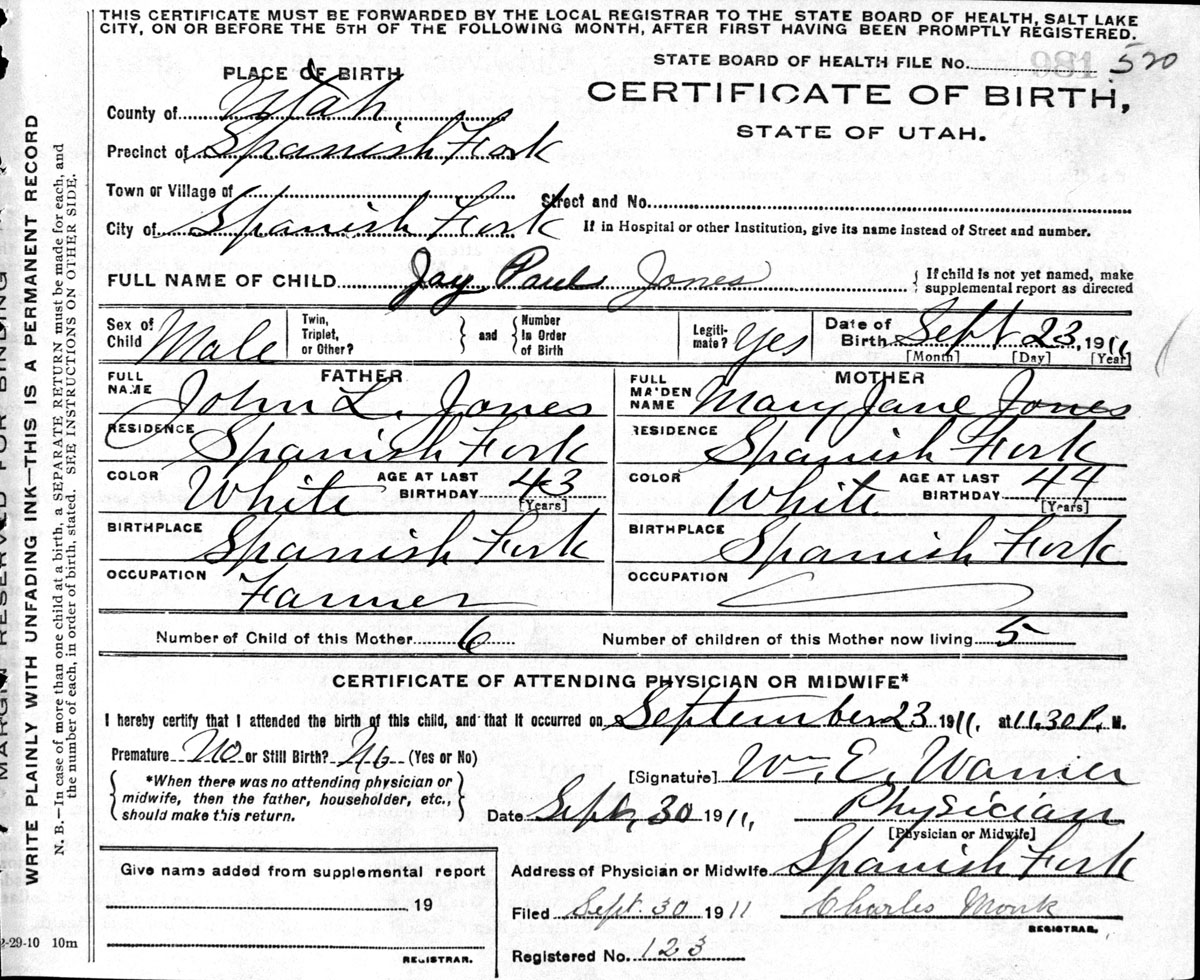 THIS CERTIFICATE MUST BE FORWARDED BY THE LOCAL REGISTRAR TO THE STATE BOARD OF HEALTH, SALT LAKE
CITY, ON OR BEFORE THE 5TH OF THE FOLLOWING MONTH, AFTER FIRST HAVING BEEN PROMPTLY REGISTERED.
STATE BOARD OF HEALTH FILE No. 520
PLACE OF BIRTH
CERTIFICATE OF BIRTH,
STATE OF UTAH.
County of Utah
Precinct of Spanish Fork
Town or Village of
Street and No.
City of Spanish Fork
If in Hospital or other Institution, give its name instead of Street and number.
FULL NAME OF CHILD Jay Paul Jones { If child is not yet named, make
supplemental report as directed
Sex of
Child Male
Twin,
Triplet,
or Other? } and { Number
In Order
of Birth
Legiti-
mate? Yes
Date of
Birth Sept 23, 1911
[Month] [Day] [Year]
FATHER
FULL
NAME John L. Jones
RESIDENCE Spanish Fork
COLOR White AGE AT LAST
BIRTHDAY 43
[Years]
BIRTHPLACE Spanish Fork
OCCUPATION Farmer
MOTHER
FULL
MAIDEN
NAME Mary Jane Jones
RESIDENCE Spanish Fork
COLOR White AGE AT LAST
BIRTHDAY 44
[Years]
BIRTHPLACE Spanish Fork
OCCUPATION
Number of Child of this Mother 6 Number of children of this Mother now living 5
CERTIFICATE OF ATTENDING PHYSICIAN OR MIDWIFE*
I hereby certify that I attended the birth of this child, and that it occurred on September 23 1911. at 11.30 P. M.
Premature No or Still Birth? No (Yes or No)
{ *When there was no attending physician or
midwife, then the father, householder, etc.,
should make this return. }
[Signature] Wm. E. Warner
Date Sept, 30 1911, Physician
[Physician or Midwife]
Address of Physician or Midwife Spanish Fork
Filed Sept. 30 1911 Charles Monk
REGISTRAR.
Registered No. 123
Give name added from supplemental report
19
REGISTRAR.
2-29-10 10m
MARGIN RESERVED FOR BINDING
WRITE PLAINLY WITH UNFADING INK—THIS IS A PERMANENT RECORD
N. B.—In case of more than one child at a birth, a SEPARATE RETURN must be made for each, and
the number of each, in order of birth, stated. SEE INSTRUCTIONS ON OTHER SIDE.